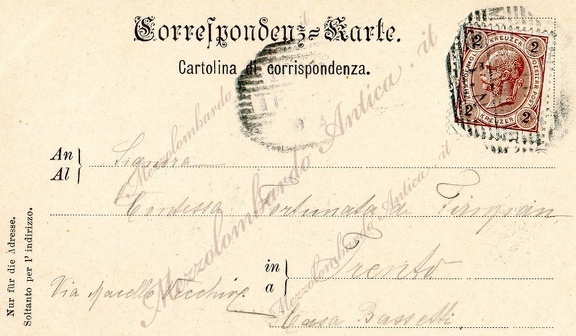 Correspondenz-Karte.
Cartolina di corrispondenza.
2 KREUZER 2
2 KREUZER 2
An
Al
Signora
Contessa Fortunata
in
a
Trento
Via Macello Vecchio
Casa Bassetti
Nur für die Adresse.
Soltanto per l' indirizzo.
Mezzolombardo Antica . il
Mezzolombardo Antica . il
Mezzolombardo